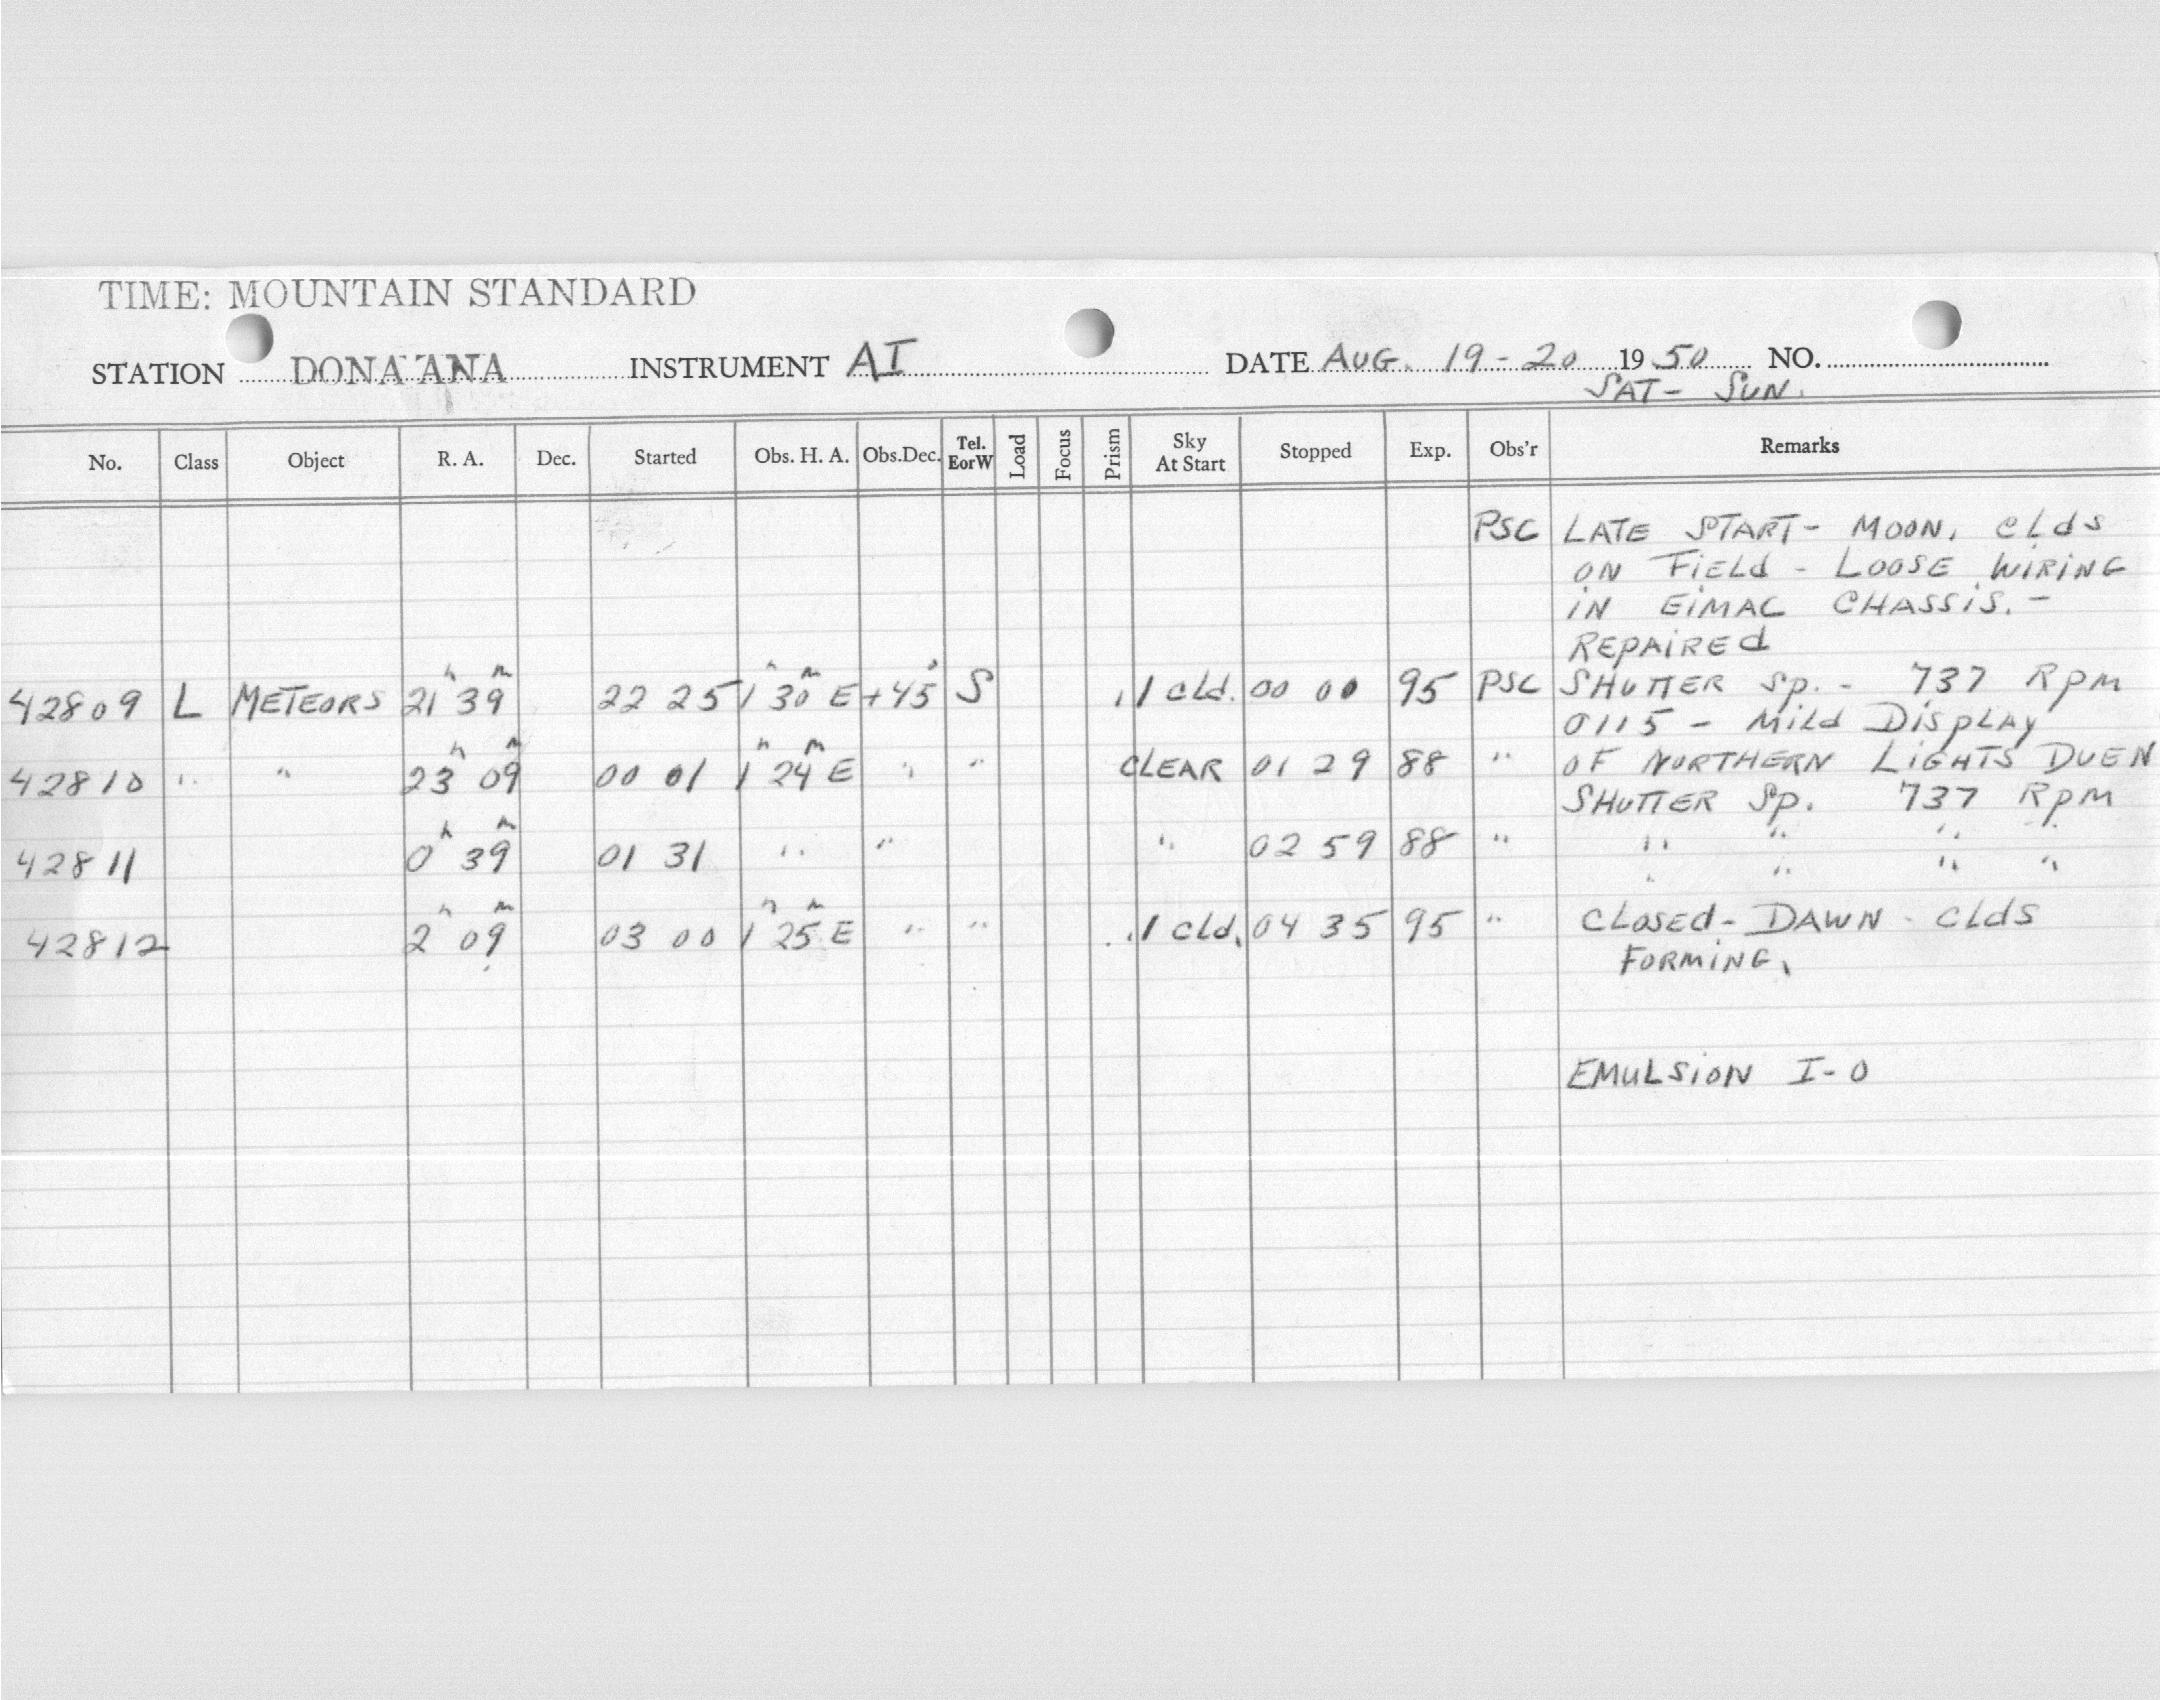 TIME: MOUNTAIN STANDARD
STATION DONA ANA INSTRUMENT AI DATE AUG. 19-20 1950 NO.
SAT- SUN.
No. Class Object R. A. Dec. Started Obs. H. A. Obs.Dec. Tel. EorW Load Focus Prism Sky At Start Stopped Exp. Obs'r Remarks
PSC LATE START- MOON, CLdS
ON FiELd - LOOSE WiRiNG
iN EiMAC CHASSiS. -
REPAiREd
42809 L METEORS 21h 39m 22 25 1h 30m E +45° S .1 cld. 00 00 95 PSC SHUTTER Sp. - 737 RPM
0115 - MiLd DiSPLAY
42810 " " 23h 09m 00 01 1h 24m E " " CLEAR 01 29 88 " OF NORTHERN LiGHTS DUE N
SHUTTER Sp. 737 RPM
42811 0h 39m 01 31 " " " 02 59 88 " " " " "
" " " "
42812 2h 09m 03 00 1h 25m E " " .1 cld. 04 35 95 " CLOSEd- DAWN - CLdS
FORMiNG.
EMULSiON I-O